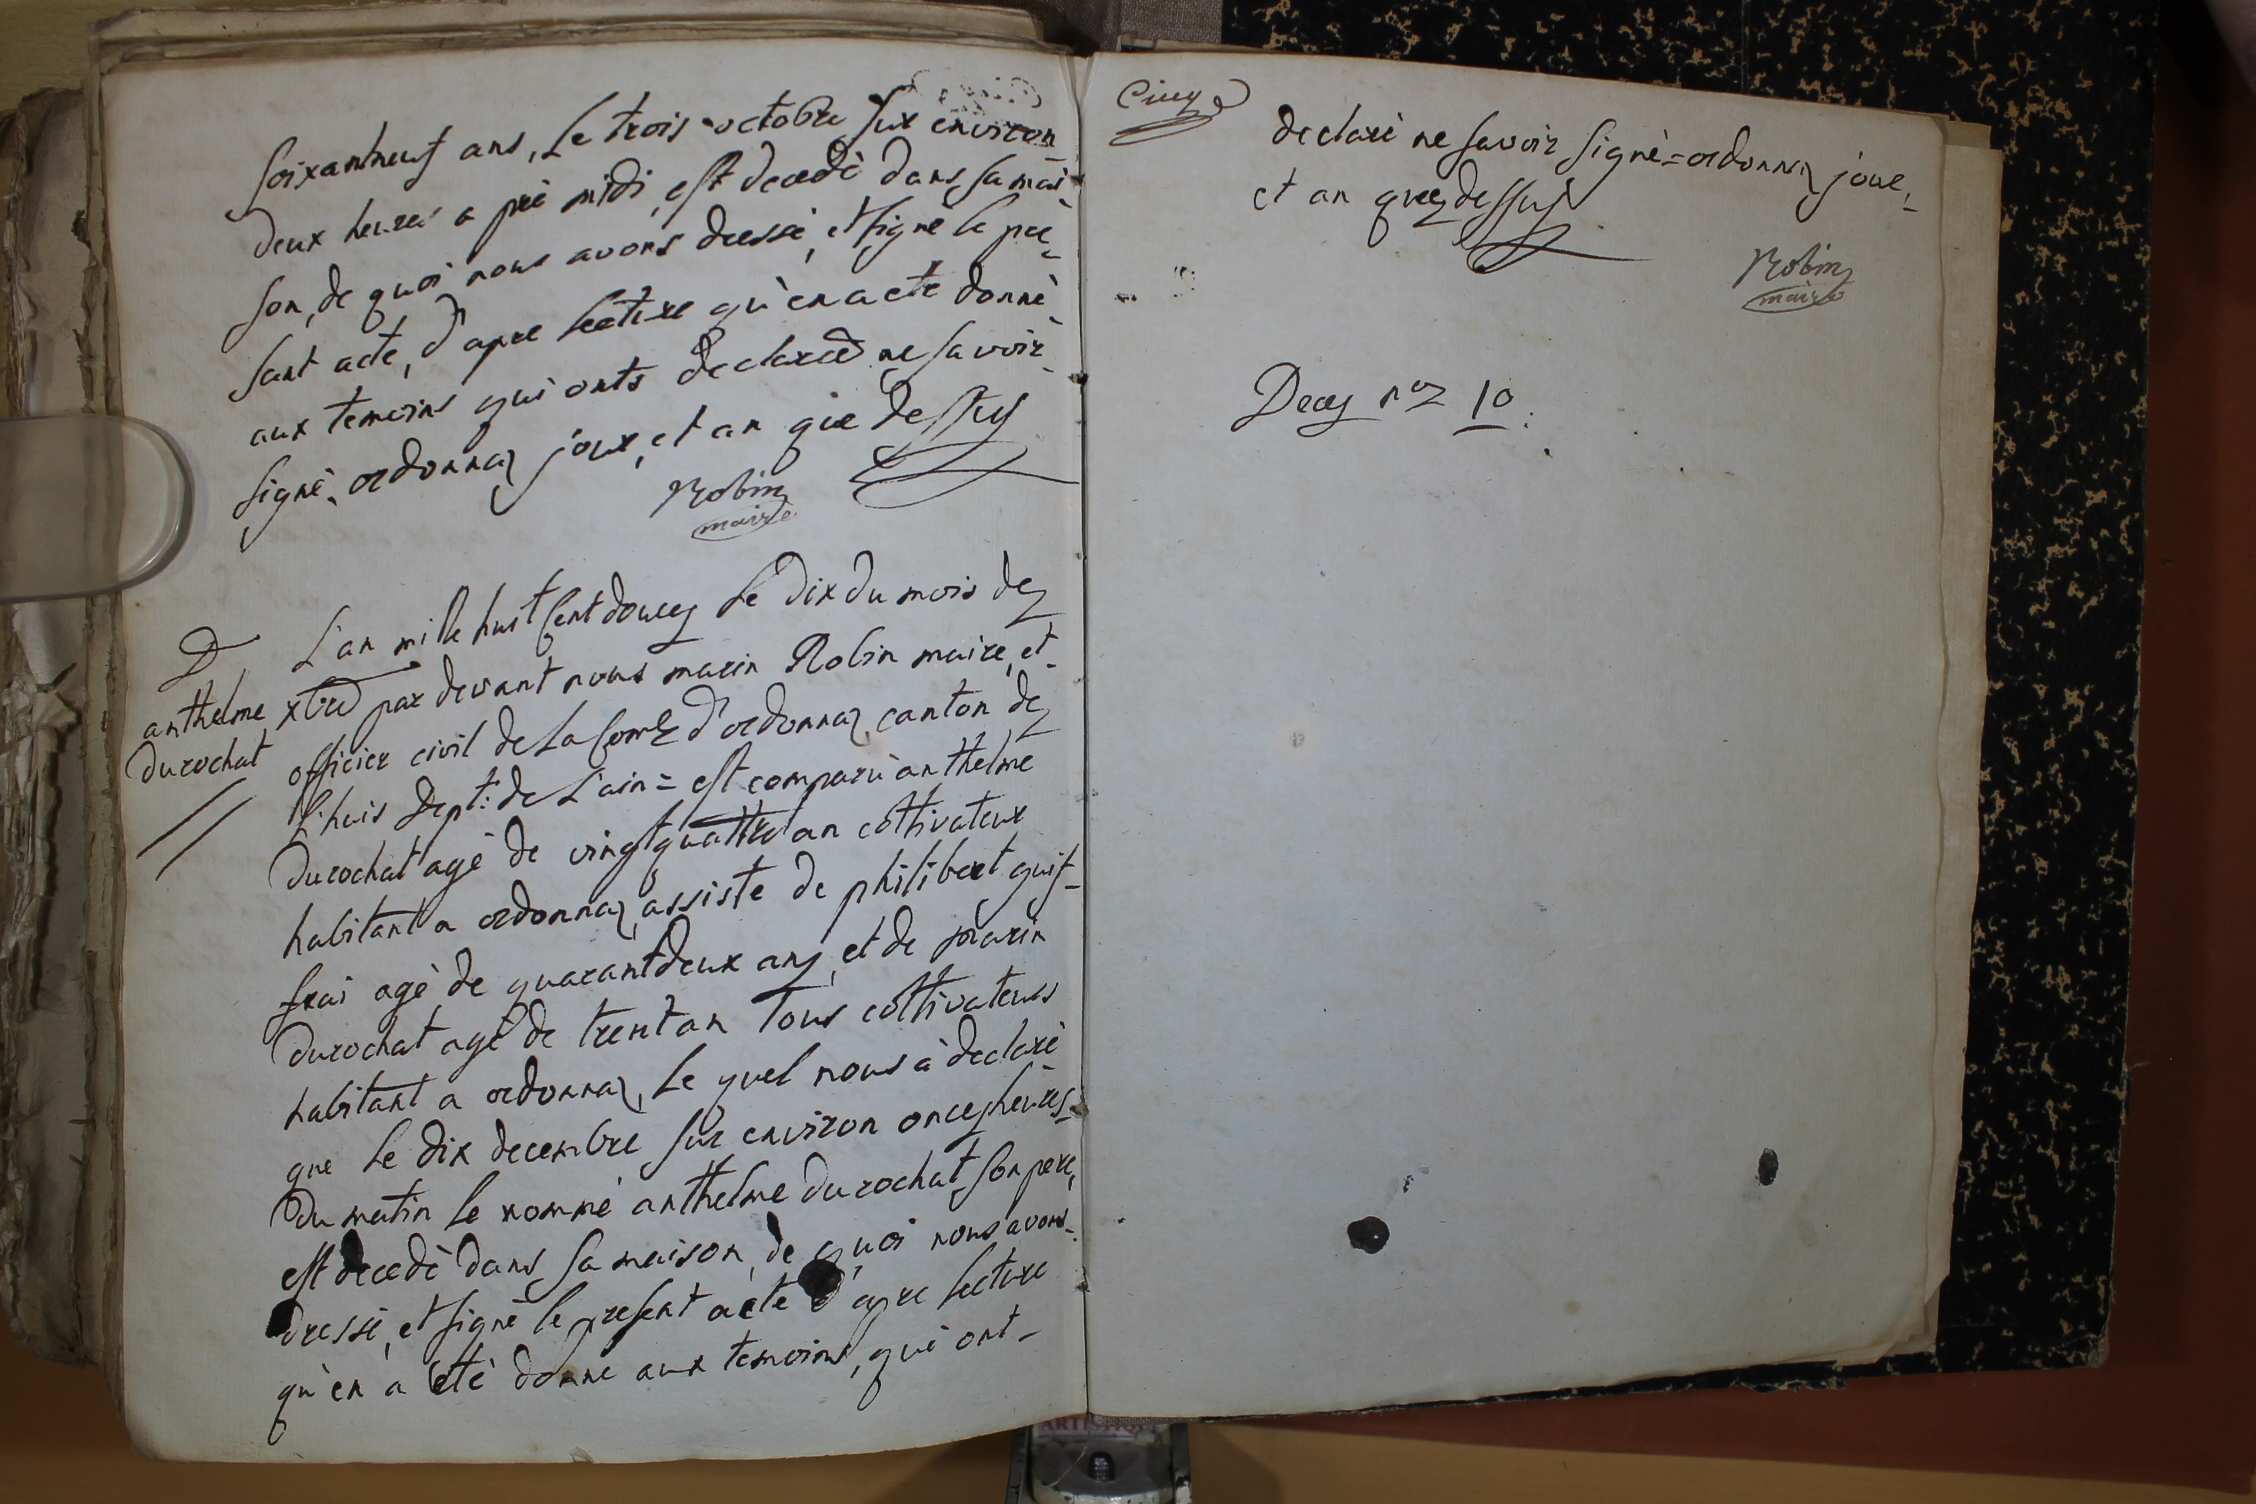 soixantneuf ans, le trois octobre sur environ
deux heures a prè midi, est decedè dans sa mai-
son, de quoi nous avons dressè, et signè le pre-
sant acte, d'apre lecture qu'en acte donnè
aux temoins qui onts declared ne savoir
signè, ordonnaz jour, et an que dessus
Robin
maire
D
anthelme
durochat
L'an mille huit cent douez le dix du mois de
xbre par devant nous marin Robin maire, et
officier civil de la Come d'ordonnaz, canton de
l'huis Dept: de L'ain = est comparu anthelme
durochat agè de vingtquattre an colltivateur
habitant a ordonnaz, assiste de philibert quif-
frai agè de quarantdeux ans, et de marin
durochat agè de trent an tous colltivateurs
habitant a ordonnaz, le quel nous à declarè
que le dix decembre sur environ oncez heures
du matin le nommè anthelme durochat son pere,
est decedè dans sa maison, de quoi nous avons
dressè, et signè le present acte d'apre lecture
qu'en a etè donne aux temoins, qui ont
Cinq
declarè ne savoir signè = ordonnaz jour,
et an que dessus
Robin
maire
Deces nos 10
ARTISTIQUE